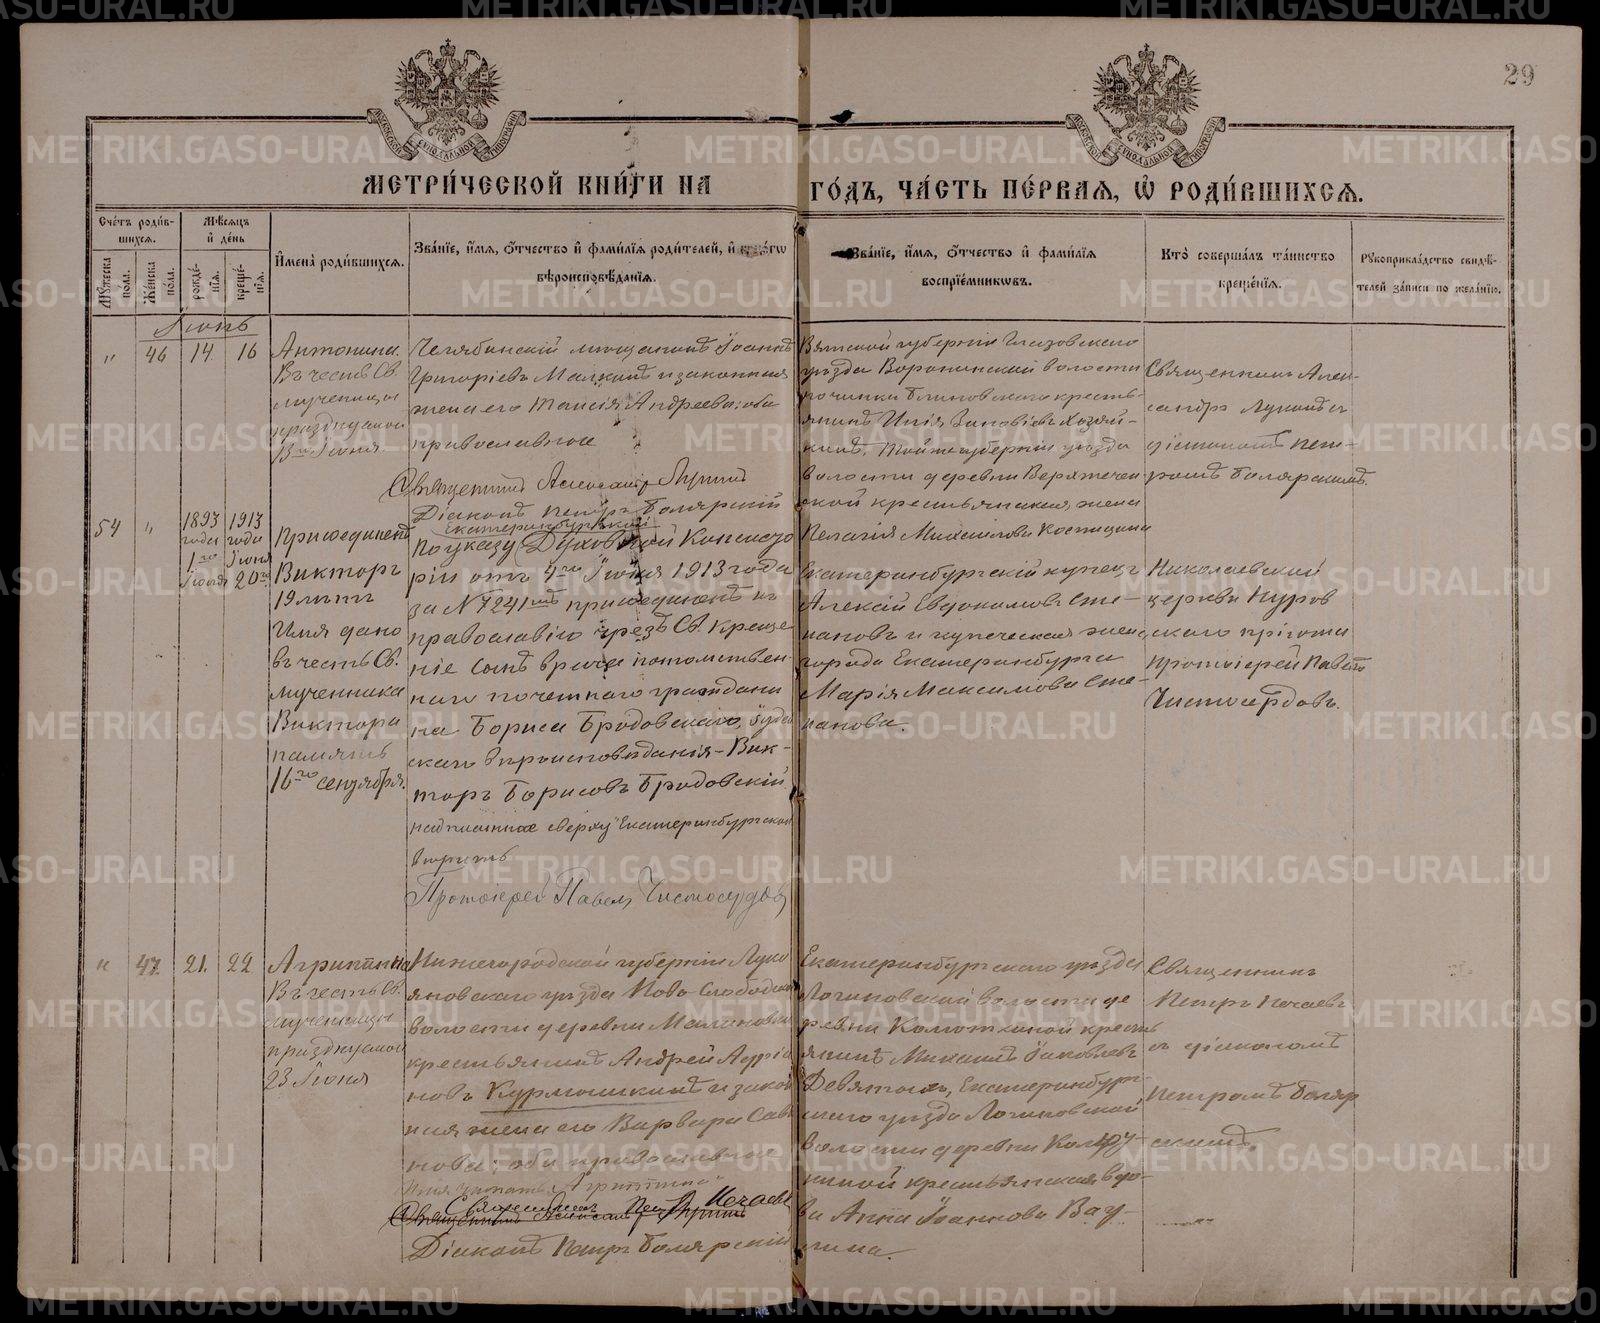 29
МЕТРИ́ЧЕСКОЙ КНИ́ГИ НА ГО́ДЪ, ЧА́СТЬ ПЕ́РВАЯ, Ѡ҆ РОДИ́ВШИХСЯ.
Сче́тъ роди́в-
шихся.
Мꙋ́жеска по́ла.
Же́нска по́ла.
Мѣ́сяцъ
и҆ де́нь
рожде́нїя.
креще́нїя.
И҆мена̀ роди́вшихся.
Зва́нїе, и҆́мя, ѻ҆́тчество и҆ фами́лїя роди́телей, и҆
вѣроисповѣ́данїя.
Зва́нїе, и҆́мя, ѻ҆́тчество и҆ фами́лїя
воспрїе́мниковъ.
Кто̀ соверша́лъ та́инство
креще́нїя.
Рꙋкоприкла́дство свидѣ́-
телей за́писи по жела́нїю.
Іюнь
" 46 14 16
Антонина.
Въ честь Св.
мученицы
празднуемой
13го Іюня.
Челябинскій мѣщанинъ Іоаннъ
Григоріевъ Малкинъ и законная
жена его Таисія Андреева; оба
православные
Священникъ Александр Лукинъ
Діаконъ Петръ Боляр­скій
Вятской губерніи Глазовскаго
уѣзда Воронинской волости
починка Блиновскаго кресть-
янинъ Илія Зиновіевъ
Той же губерніи уѣзда
волости деревни
ской крестьянская жена
Пелагія Михаилова Костицина
Священникъ Алек-
сандръ Лукинъ съ
діакономъ Пет-
ромъ Болярскимъ.
54 "
1893 года 1го Іюня
1913 года Іюня 20го
Присоединенъ
Викторъ
19 лѣтъ
Имя дано
въ честь Св.
мученника
Виктора
память
16го сентября.
Екатеринбургской
По указу Духовной Консисто
ріи отъ 4го Іюня 1913 года
за № 7241мъ присоединенъ къ
православію чрезъ Св. Креще
ніе сынъ врача потомствен
наго почетнаго граждани
на Бориса Бродовскаго, Іудей
скаго вѣроисповѣданія - Вик-
торъ Борисовъ Бродовскій.
надписанное сверху "Екатеринбургской"
вѣрить
Протоіерей Павелъ Чистосердовъ
Екатеринбургскій купецъ
Алексій Евдокимовъ Сте-
пановъ и купеческая жена
города Екатеринбурга
Марія Максимова Сте-
панова.
Николаевской
церкви
скаго пріюта
Протоіерей Павелъ
Чистосердовъ.
" 47. 21. 22
Агриппина
Въ честь Св.
мученицы
празднуемой
23 Іюня
Нижегородской губерніи Луко
яновскаго уѣзда Ново-Слободской
волости деревни Малиновки
крестьянинъ Андрей Адріа
новъ Курмышкинъ и закон
ная жена его Варвара Сав
нова; оба православные
Священникъ Петръ Нечаевъ
Діаконъ Петръ Болярскій
Екатеринбургскаго уѣзда
Логиновской волости де
ревни кресть
янинъ Михаилъ Іаковлевъ
Девятыхъ, Екатеринбург-
скаго уѣзда Логиновской
волости деревни
киной крестьянская вдо-
ва Анна Іоаннова Вау-
лина.
Священникъ
Петръ Нечаевъ
съ діакономъ
Петромъ Боляр
скимъ.
METRIKI.GASO-URAL.RU